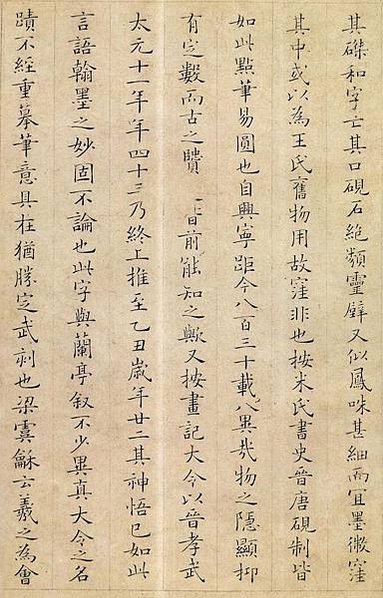 其磔和字亡其口硯石絶類靈璧又似鳳咮甚細而宜墨微窪
其中或以為王氏舊物用故窪非也按米氏書史晉唐硯制皆
如此點筆易圓也自興寧距今八百三十載八異哉物之隱顯抑
有定數而古之前能知之歟又按畫記大令以晉孝武
太元十一年年四十三乃終上推至乙丑歲年廿二其神悟已如此
言語翰墨之妙固不論也此字與蘭亭叙不少異真大令之名
蹟不經重摹筆意具在猶勝定武刻也梁虞龢云羲之為會